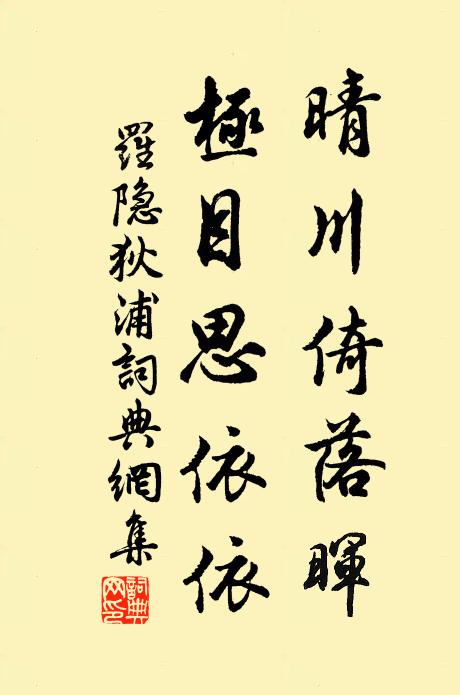 晴川倚落暉
極目思依依
羅隐狄浦詞典網集
詞典
网印